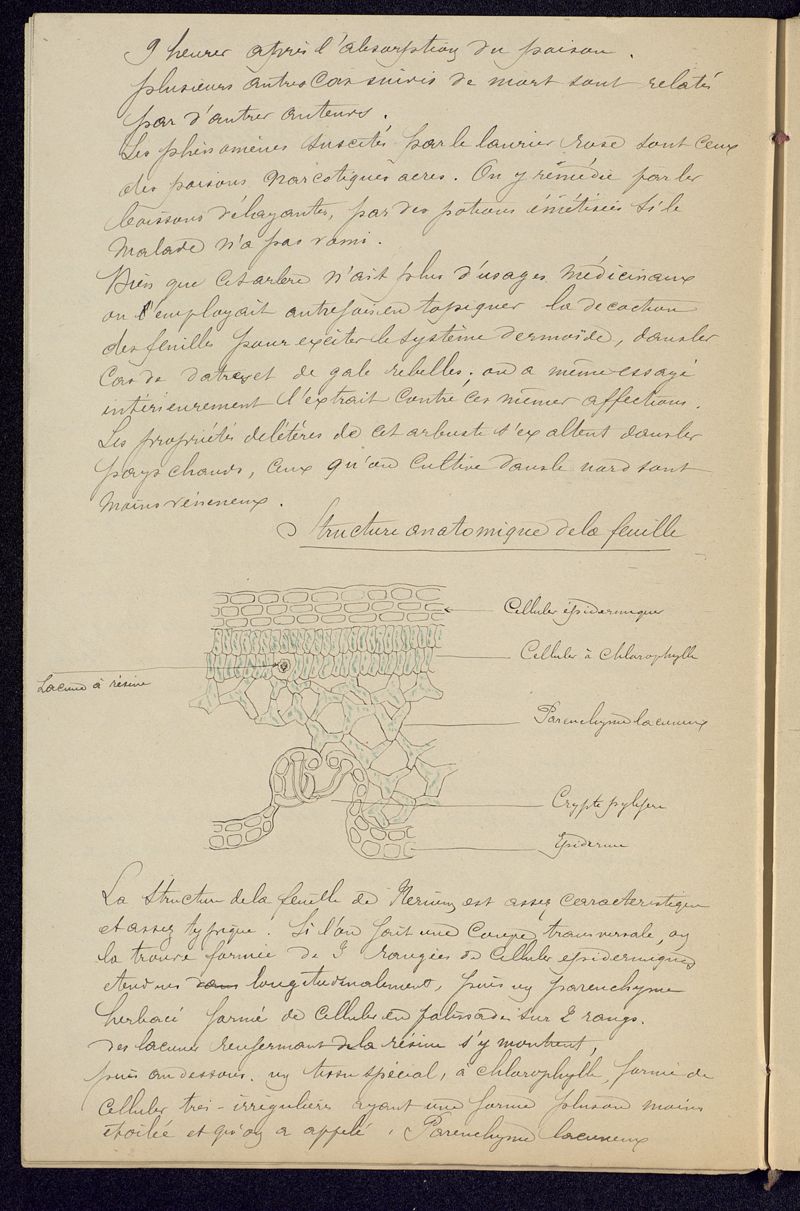 9 heures après l'absorption du poison.
plusieurs autres Cas suivis de mort sont relatés
par d'autres auteurs.
Les phénomènes suscités par le laurier rose sont ceux
des poisons Narcotiques acres. On y rémédie par les
boissons délayantes, par des potions émétisées si le
Malade n'a pas vomi.
Bien que cet arbre n'ait plus d'usages Médicinaux
on l'employait autrefois en topiques la decoction
des feuilles pour exciter le système dermoïde, dans les
Cas de datres et de gale rebelles; on a même essayé
intérieurement l'extrait contre ces mêmes affections.
Les propriétés delétères de cet arbuste s'exaltent dans les
pays chauds, ceux qu'on cultive dans le nord sont
Moins vénéneux.
Structure anatomique de la feuille
Cellules épidermiques
Cellules à chlorophylle
Lacune à résine
Parenchyme lacuneux
Crypte pilifère
Epiderme
La structure de la feuille de Nerium est assez caracteristique
et assez typique. Si l'on fait une Coupe transversale, on
la trouve formée de 3 rangées de Cellules epidermiques
étendues dans longitudinalement, puis un parenchyme
herbacé formé de cellules en palissades sur 2 rangs.
des lacunes renfermant de la résine s'y montrent,
puis au dessous, un tissu spécial, à chlorophylle, formé de
Cellules très-irrégulières ayant une forme plus ou moins
étoilée et qu'on a appelé, Parenchyme lacuneux